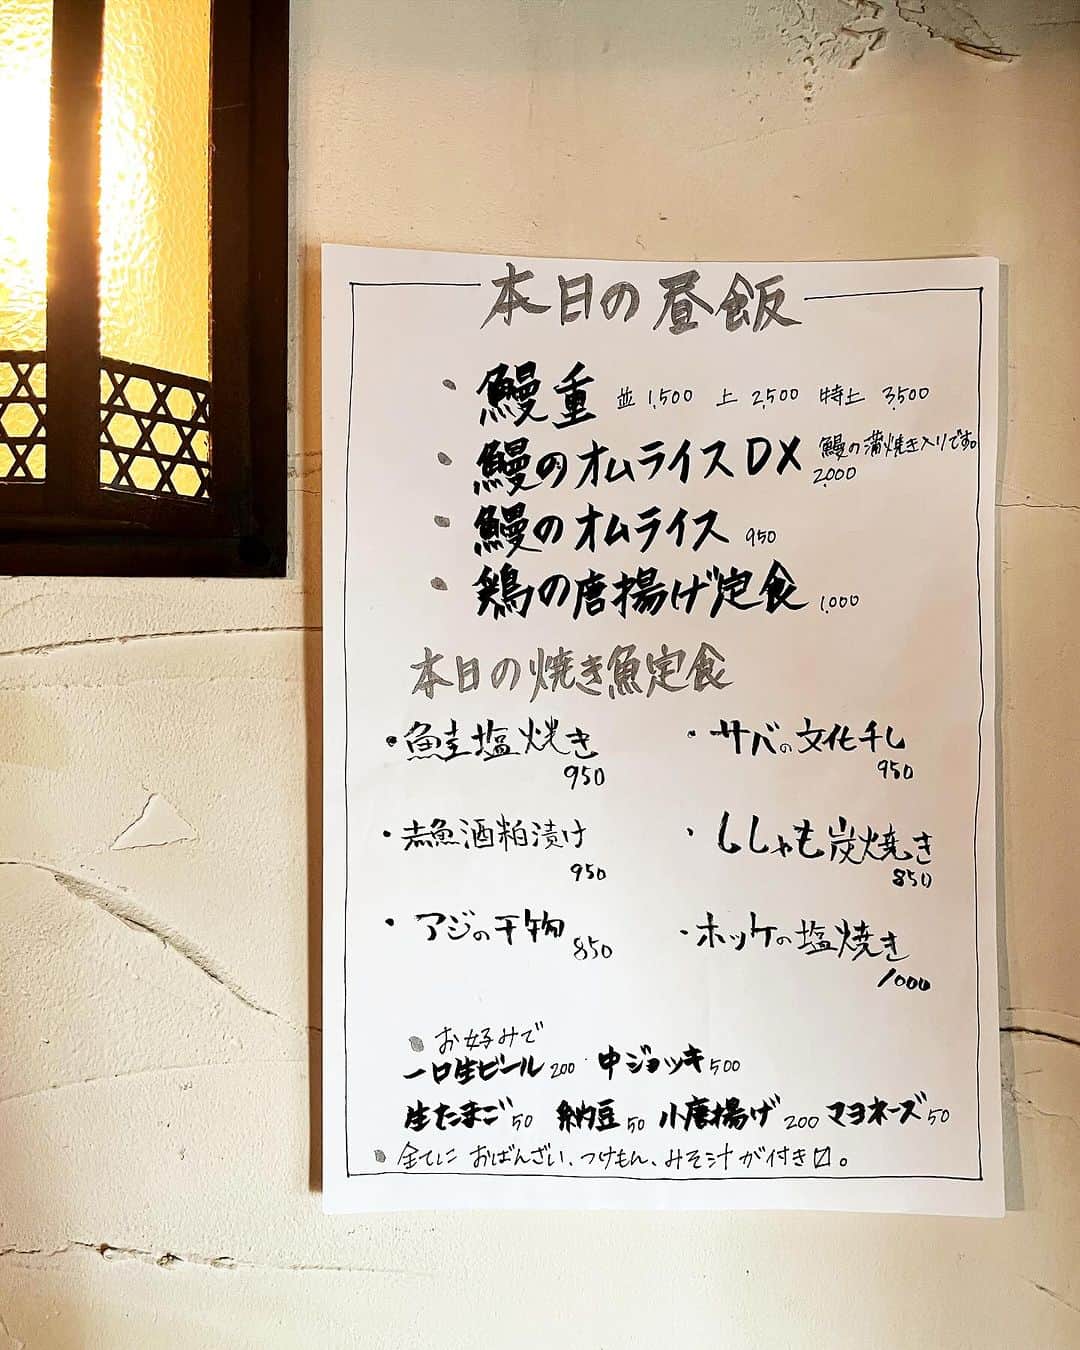 本日の昼飯
・鰻重 並 1,500 上 2,500 特上 3,500
・鰻のオムライスDX 鰻の蒲焼き入りです。
2,000
・鰻のオムライス 950
・鶏の唐揚げ定食 1,000
本日の焼き魚定食
・鮭塩焼き
950
・サバの文化干し
950
・赤魚酒粕漬け
950
・ししゃも炭焼き
850
・アジの干物 850
・ホッケの塩焼き
1000
・お好みで
一口生ビール 200 中ジョッキ 500
生たまご 50 納豆 50 小唐揚げ 200 マヨネーズ 50
・全てに おばんざい、つけもん、みそ汁が付き〼。